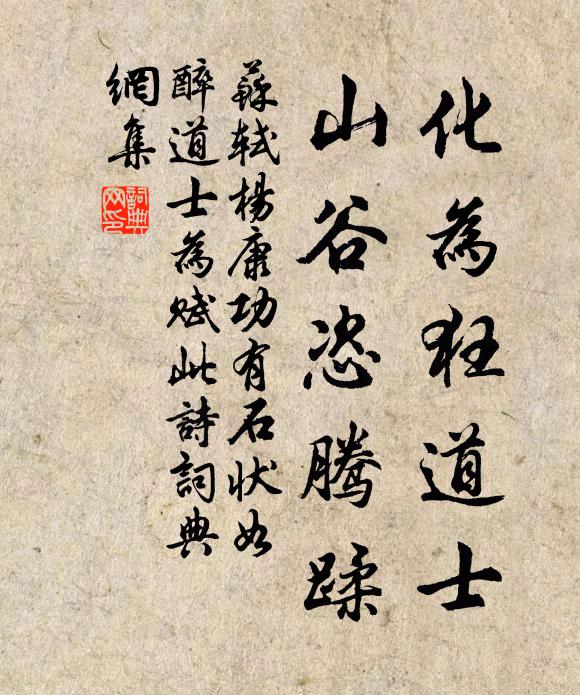 化為狂道士
山谷恣騰蹂
蘇軾楊康功有石狀如
醉道士為賦此詩詞典
網集
詞典
网印